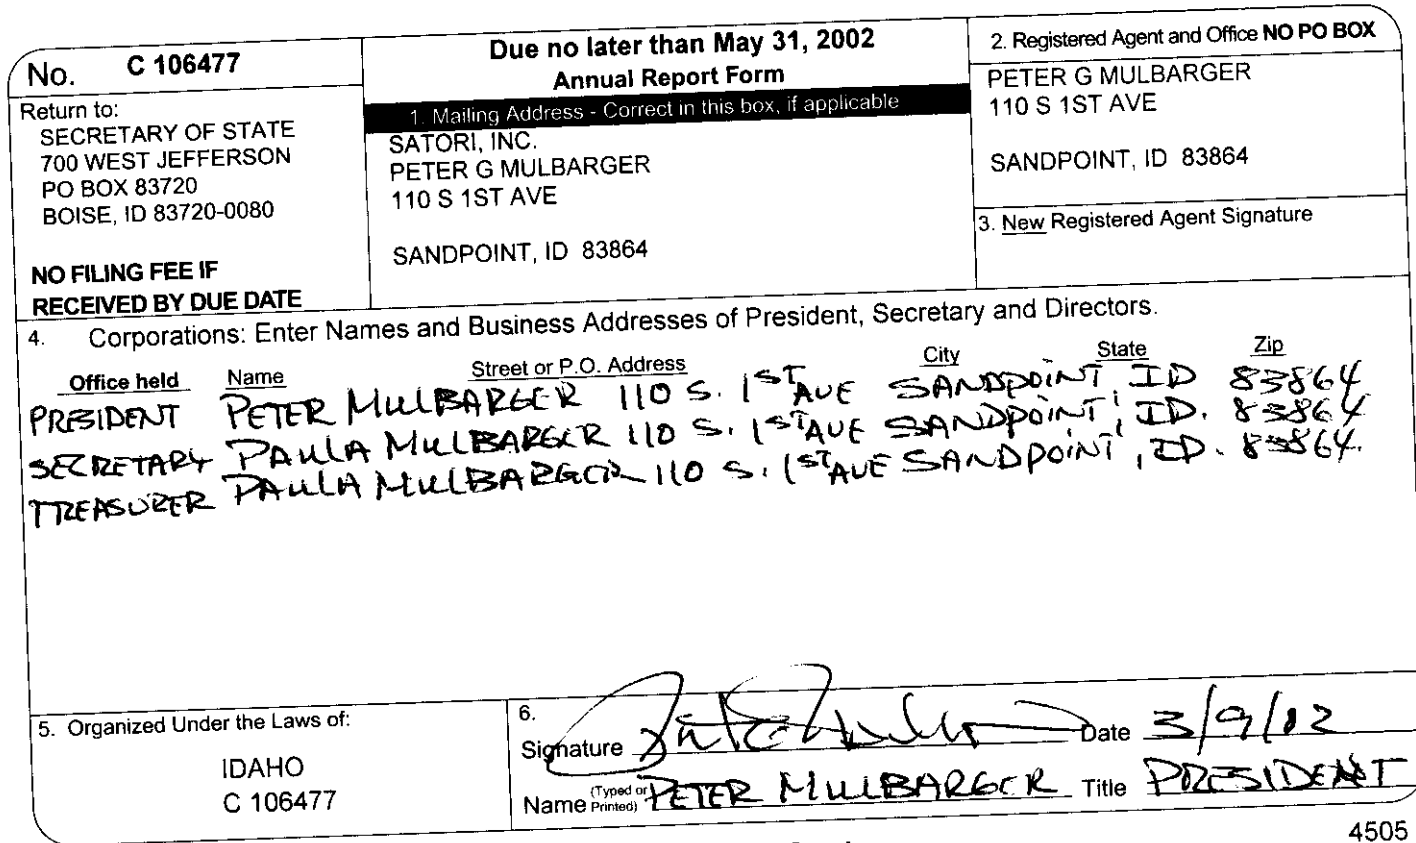 No. C 106477
Return to:
SECRETARY OF STATE
700 WEST JEFFERSON
PO BOX 83720
BOISE, ID 83720-0080
NO FILING FEE IF
RECEIVED BY DUE DATE
Due no later than May 31, 2002
Annual Report Form
1. Mailing Address - Correct in this box, if applicable
SATORI, INC.
PETER G MULBARGER
110 S 1ST AVE
SANDPOINT, ID 83864
2. Registered Agent and Office NO PO BOX
PETER G MULBARGER
110 S 1ST AVE
SANDPOINT, ID 83864
3. New Registered Agent Signature
4. Corporations: Enter Names and Business Addresses of President, Secretary and Directors.
Office held Name Street or P.O. Address City State Zip
PRESIDENT PETER MULBARGER 110 S. 1ST AVE SANDPOINT, ID 83864
SECRETARY PAULA MULBARGER 110 S. 1ST AVE SANDPOINT, ID. 83864
TREASURER PAULA MULBARGER 110 S. 1ST AVE SANDPOINT, ID. 83864.
5. Organized Under the Laws of:
IDAHO
C 106477
6.
Signature Date 3/9/02
Name (Typed or Printed) PETER MULBARGER Title PRESIDENT
4505